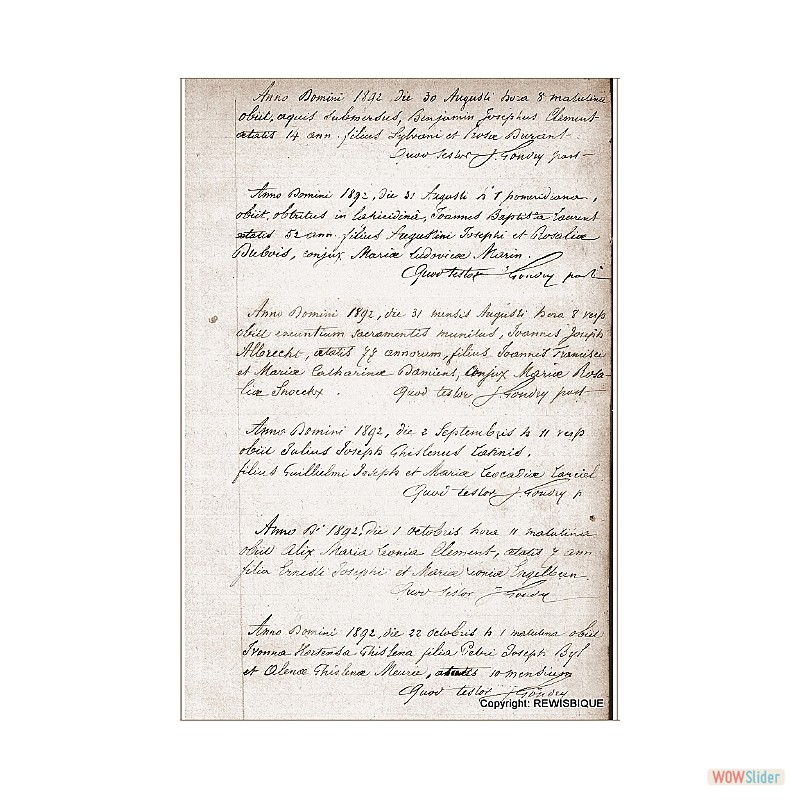 Anno Domini 1892 die 30 Augusti hora 8 matutina
obiit, aquis submersus, Benjamin Josephus Clement
ætatis 14 ann. filius Sylvani et Rosæ Durant
Quod testor J. Goudry past
Anno Domini 1892, die 31 Augusti h 1 pomeridiana,
obiit, obtritus in lapicidina, Joannes Baptista Laurent
ætatis 52 ann filius Augustini Josephi et Rosaliæ
Dubois, conjux Mariæ Ludovicæ Marin.
Quod testor J Goudry past
Anno Domini 1892, die 31 mensis Augusti hora 8 vesp
obiit exeuntium sacramentis munitus, Joannes Joseph
Albrecht, ætatis 77 annorum, filius Joannis Francisci
et Mariæ Catharinæ Damient, conjux Mariæ Rosa-
liæ . Quod testor J Goudry past
Anno Domini 1892, die 2 Septembris h 11 vesp
obiit Julius Joseph Ghislenus
filius Guillielmi Joseph et Mariæ Leocadiæ
Quod testor J. Goudry p
Anno Di 1892, die 1 octobris hora 11 matutina
obiit Alix Maria Leonia Clement, ætatis 7 ann
filia Ernesti Josephi et Mariæ Leoniæ
Quod testor J Goudry
Anno Domini 1892, die 22 octobris h 1 matutina obiit
Ivonna Hortensa Ghislena filia Petri Joseph Byl
et Alenæ Ghislenæ Meurie, ætatis 10 mensium
Quod testor J Goudry
Copyright: REWISBIQUE
WOWSlider